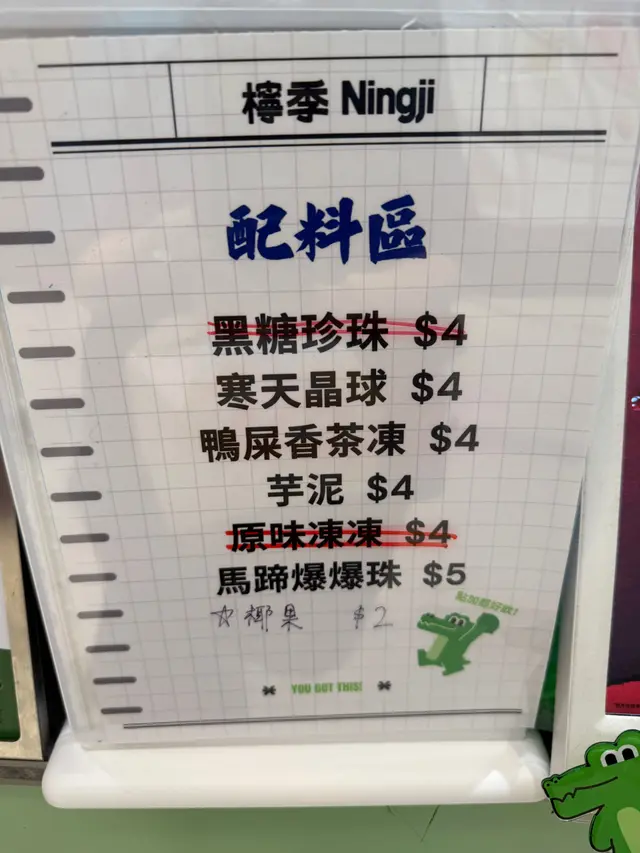 檸季 Ningji
配料區
黑糖珍珠 $4
寒天晶球 $4
鴨屎香茶凍 $4
芋泥 $4
原味凍凍 $4
馬蹄爆爆珠 $5
☆椰果 $2
點加都好飲!
YOU GOT THIS!